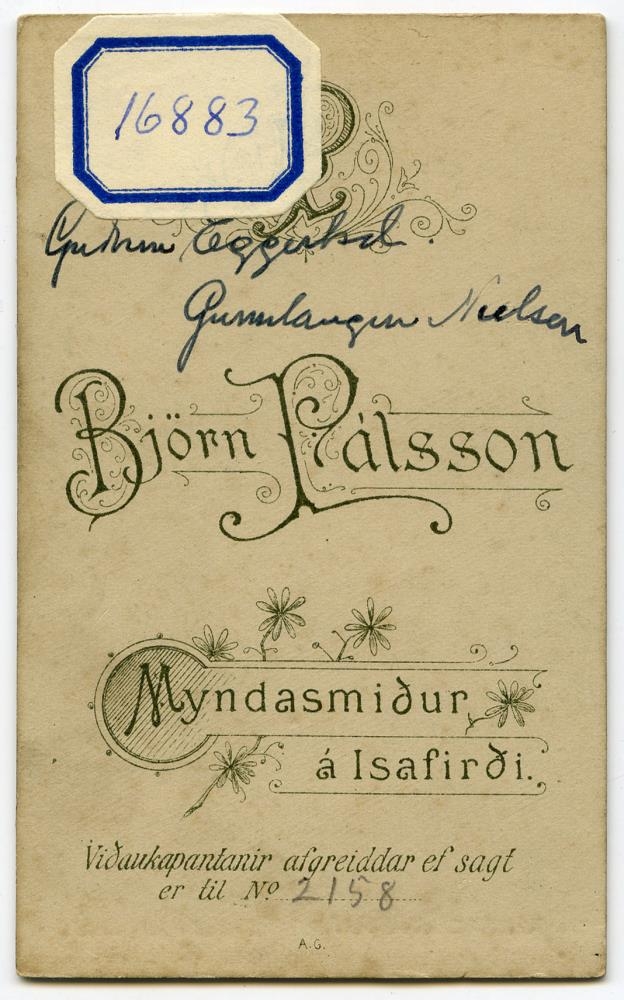 16883
Guðrún Eggertsd.
Gunnlaugur Nielsen
Björn Pálsson
Myndasmiður
á Isafirði.
Viðaukapantanir afgreiddar ef sagt
er til No 2158
A.G.